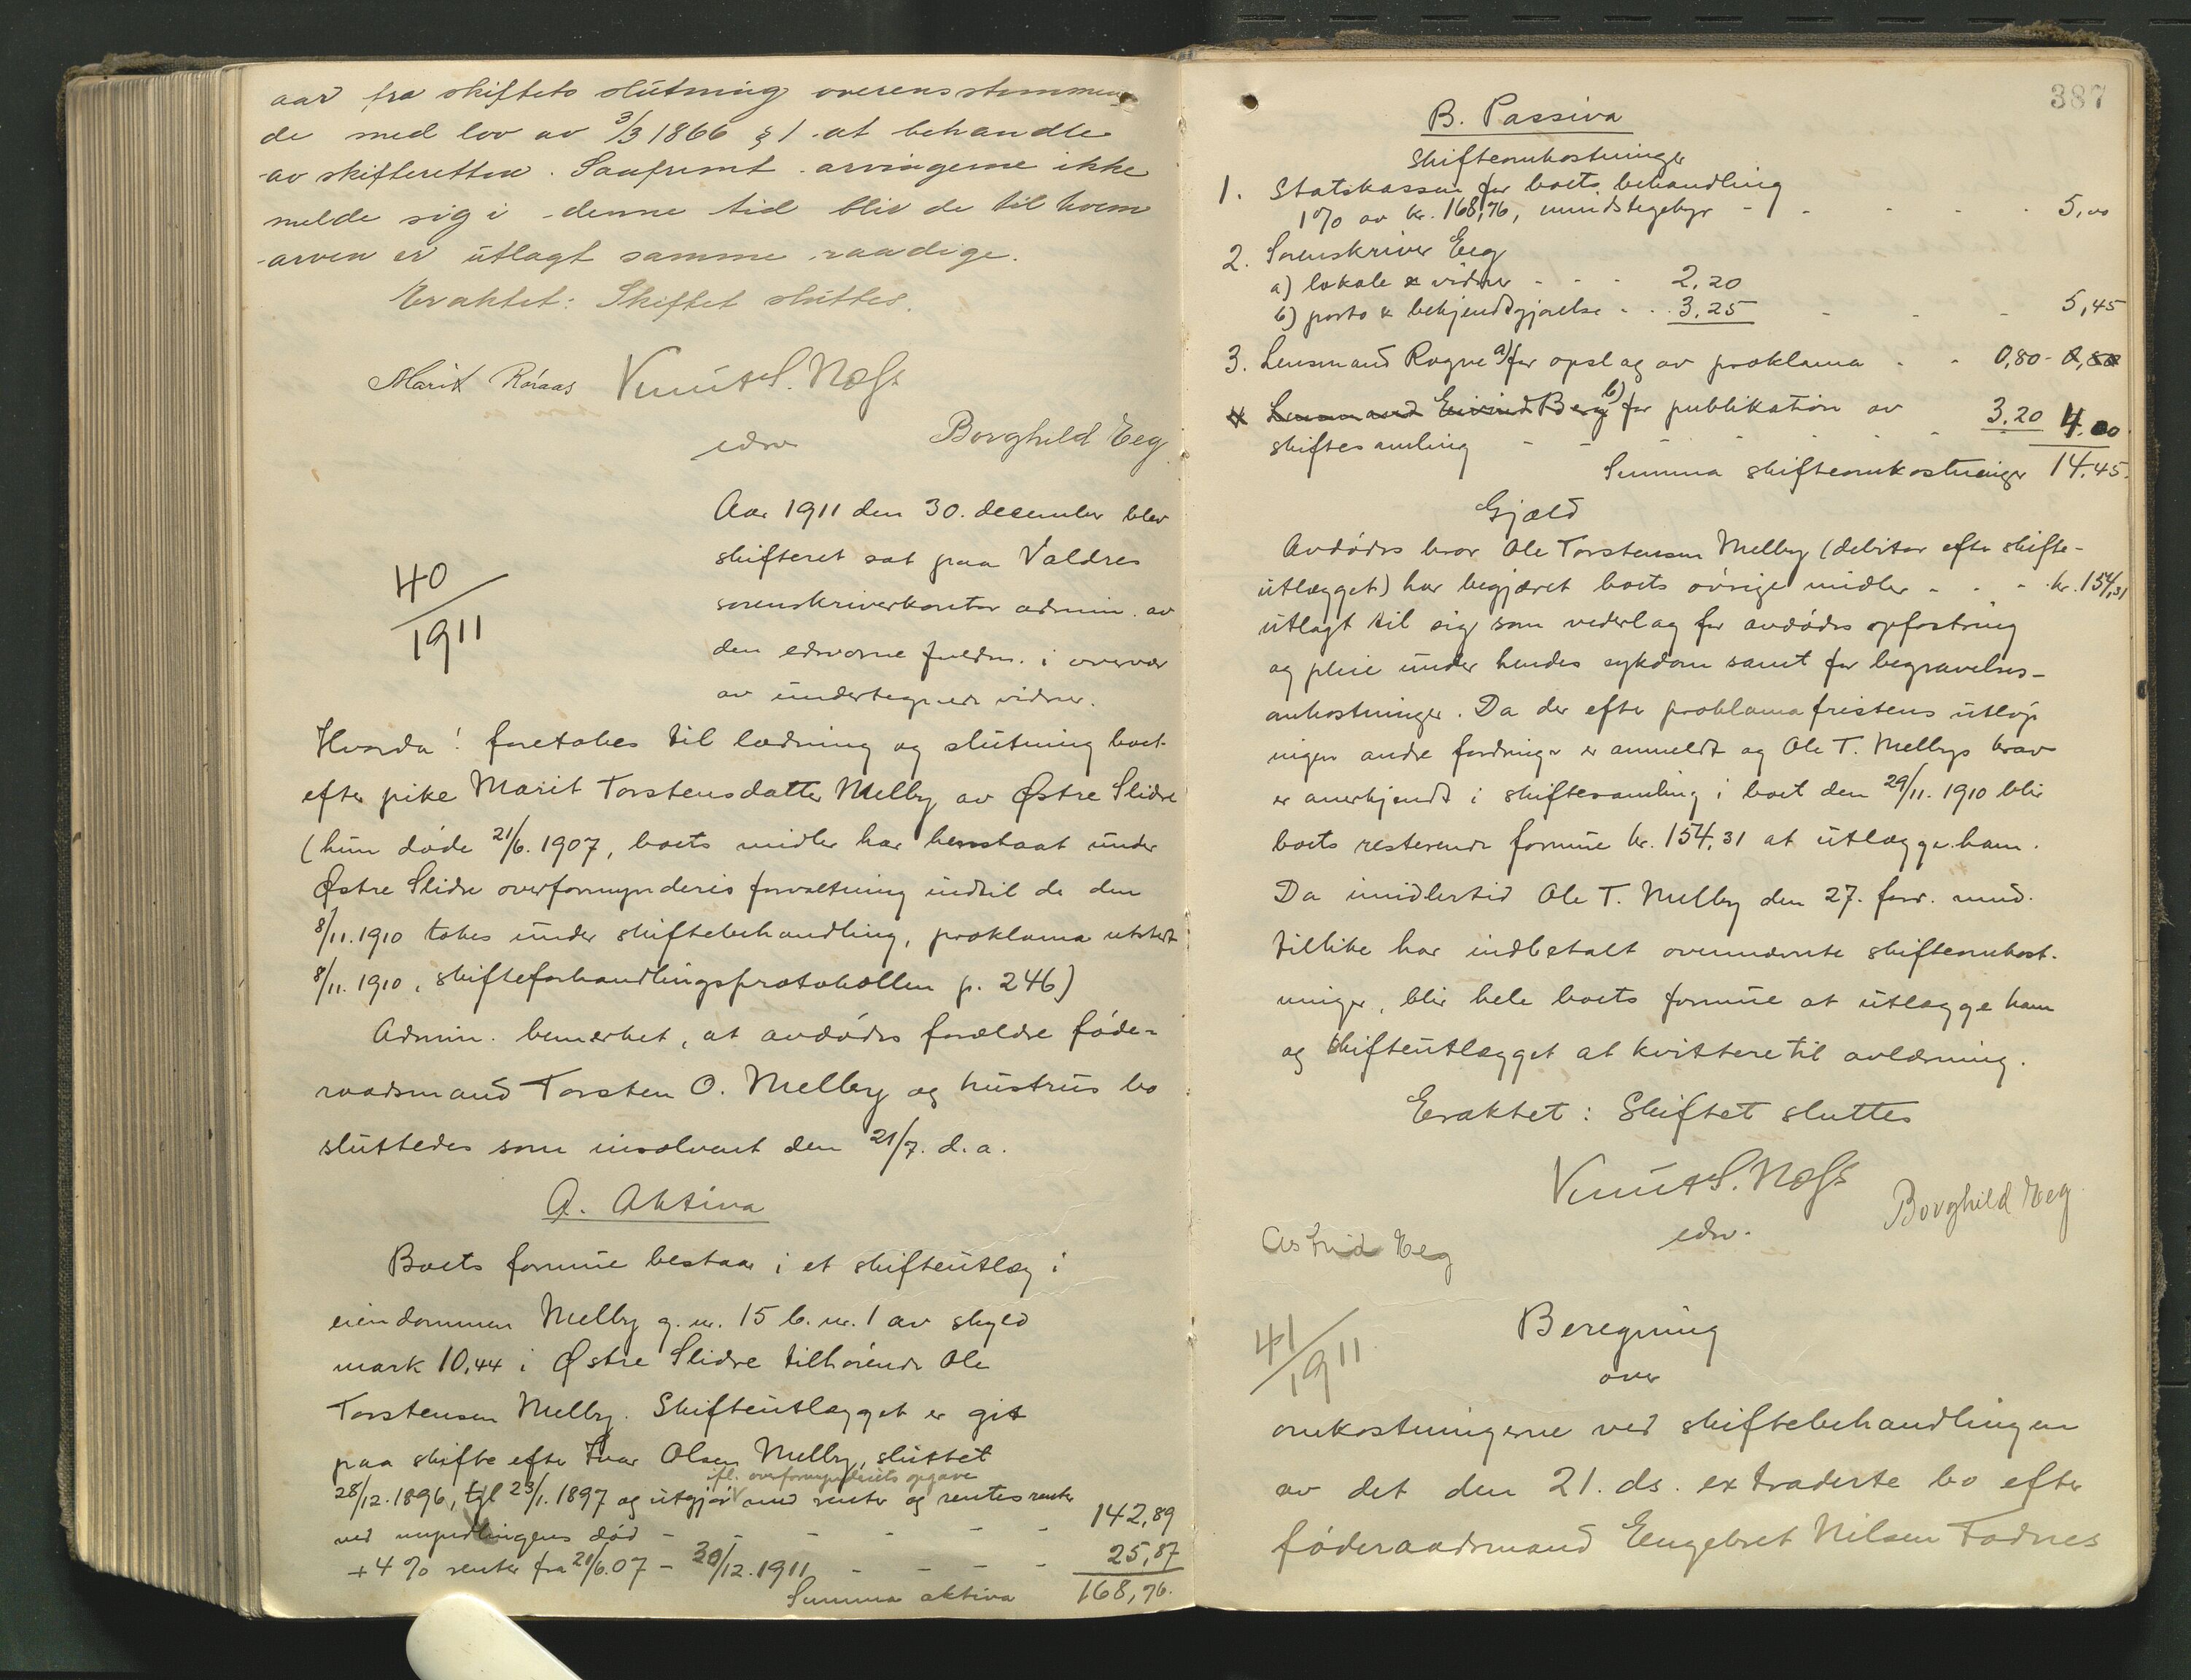 aar fra skiftets slutning overensstemmen
de med lov av 3/3 1866 § 1 at behandle
av skifteretten. Saafremt arvingerne ikke
melde sig i denne tid blir de til hvem
arven er utlagt samme raadige.
Eraktet: Skiftet sluttes.
Marit Röraas Knut S. Næss
edsv Borghild Eeg
40/1911
Aar 1911 den 30. december blev
skifteret sat paa Valdres
sorenskriverkontor admin. av
den edsvorne fuldm. i overvær
av undertegnede vidner.
Hvorda: foretokes til lodning og slutning boet
efter pike Marit Torstensdatter Melby av Østre Slidre
(hun døde 21/6. 1907, boets midler har henstaat under
Østre Slidre overformynderis forvaltning indtil de den
8/11. 1910 tokes under skiftebehandling, proklama utstedt
8/11. 1910, skifteforhandlingsprotokollen p. 246)
Admin. bemerket, at avdødes forældre føde-
raadsmand Torsten O. Melby og hustrus bo
sluttedes som insolvent den 21/7. d. a.
A. Aktiva
Boets formue bestaar i et skifteutlæg i
eiendommen Melby g. nr. 15 b. nr. 1 av skyld
mark 10,44 i Østre Slidre tilhørende Ole
Torstensen Melby. Skifteutlægget er git
paa skifte efter Ivar Olsen Melby, sluttet
fl. overformynderiets opgave
28/12. 1896, tgl 23/1. 1897 og utgjør med renter og rentesrenter
ved myndlingens død - - - - - - 142,89
+ 4 % renter fra 21/6.07 - 30/12. 1911 - - - - 25,87
Summa aktiva 168,76.
387
B. Passiva
Skifteomkostninger
1. Statskassen for boets behandling
1% av kr. 168,76, mindstegebyr - - - - 5,00
2. Sorenskriver Eeg
a) lokale & vidner - - - 2,20
b) porto & bekjendtgjørelse - - 3,25 - - - 5,45
3. Lensmand Rogne a) for opslag av proklama - - 0,80 - 0,80
4 Lensmand Eivind Berg b) for publikation av 3,20 4,00
skiftesamling - - - - - -
Summa skifteomkostninger 14,45.
Gjæld
Avdødes bror Ole Torstensen Melby (debitor efter skifte-
utlægget) har begjæret boets øvrige midler - - - kr. 154,31
utlagt til sig som vederlag for avdødes opfostring
og pleie under hendes sykdom samt for begravelses-
omkostninger. Da der efter proklamafristens utløp
ingen andre fordringer er anmeldt og Ole T. Melbys krav
er anerkjendt i skiftesamling i boet den 29/11. 1910 blir
boets resterende formue kr. 154,31 at utlægge ham.
Da imidlertid Ole T. Melby den 27. forr. mnd.
tillike har indbetalt ovennævnte skifteomkost-
ninger, blir hele boets formue at utlægge ham
og skifteutlægget at kvittere til avlæsning.
Eraktet: Skiftet sluttes
Knut S. Næss
edsv. Borghild Eeg
Astrid Eeg
41/1911.
Beregning
over
omkostningerne ved skiftebehandlingen
av det den 21. ds. extraderte bo efter
føderaadsmand Engebret Nilsen Fodnes